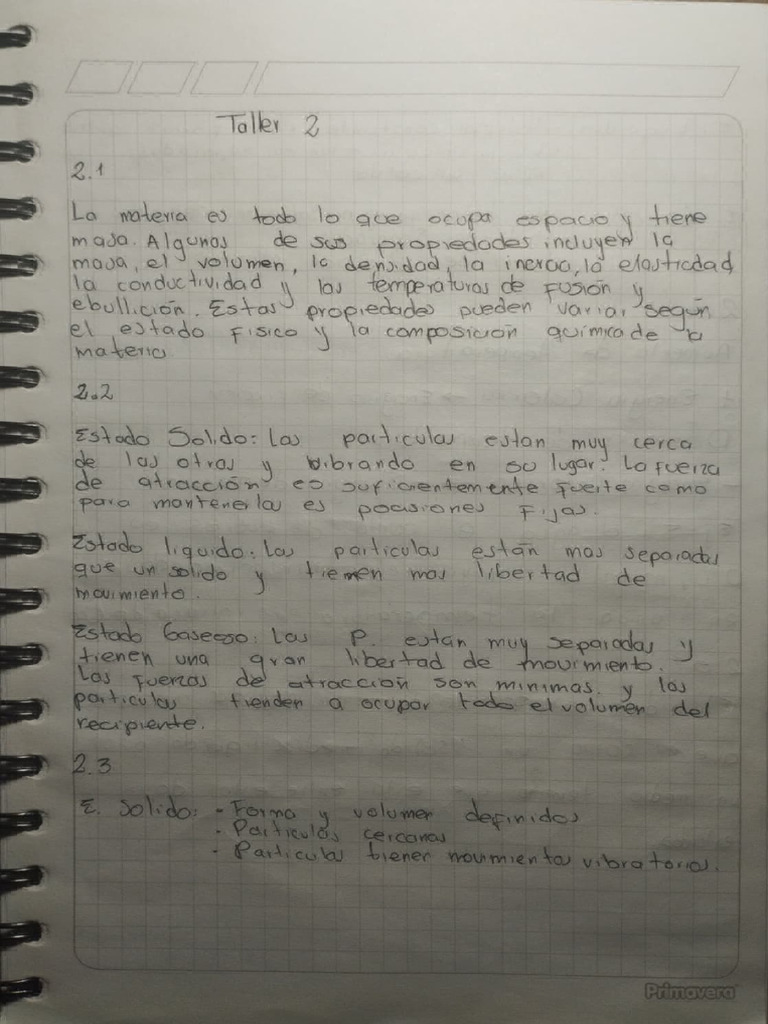 Taller 2
2.1
La materia es todo lo que ocupa espacio y tiene
masa. Algunas de sus propiedades incluyen la
masa, el volumen, la densidad, la inercia, la elasticidad,
la conductividad y las temperaturas de fusión y
ebullición. Estas propiedades pueden variar según
el estado Fisico y la composición química de la
materia
2.2
Estado Solido: Las particulas estan muy cerca
de las otras y vibrando en su lugar. La fuerza
de atracción es suficientemente fuerte como
para mantenerla es posciones Fijas.
Estado liquido: Las particulas están mas separadas
que un solido y tienen mas libertad de
movimiento.
Estado Gaseoso: Las P. estan muy separadas y
tienen una gran libertad de movimiento.
Las fuerzas de atracción son minimas, y las
particulas tienden a ocupar todo el volumen del
recipiente.
2.3
E. Solido: - Forma y volumen definidos
- Particulas cercanas
- Particulas tienen movimientos vibratorios.
Primavera